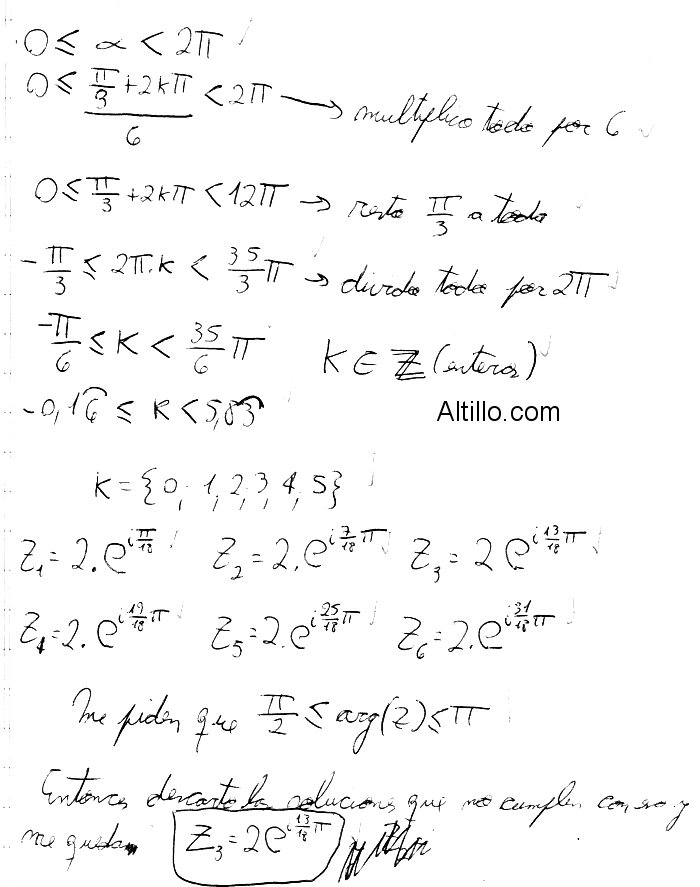 0 ≤ α < 2π
0 ≤ (π/3 + 2kπ)/6 < 2π → multiplico todo por 6
0 ≤ π/3 + 2kπ < 12π → resto π/3 a todo
-π/3 ≤ 2π.k < 35/3 π → divido todo por 2π
-π/6 ≤ K < 35/6 π K ∈ Z (enteros)
-0,16 ≤ K < 5,83
Altillo.com
K = {0, 1, 2, 3, 4, 5}
Z₁ = 2.e^(i π/18) Z₂ = 2.e^(i 7/18 π) Z₃ = 2 e^(i 13/18 π)
Z₄ = 2.e^(i 19/18 π) Z₅ = 2.e^(i 25/18 π) Z₆ = 2.e^(i 31/18 π)
Me piden que π/2 ≤ arg(z) ≤ π
Entonces descarto las soluciones que no cumplen con eso y
me queda Z₃ = 2 e^(i 13/18 π)